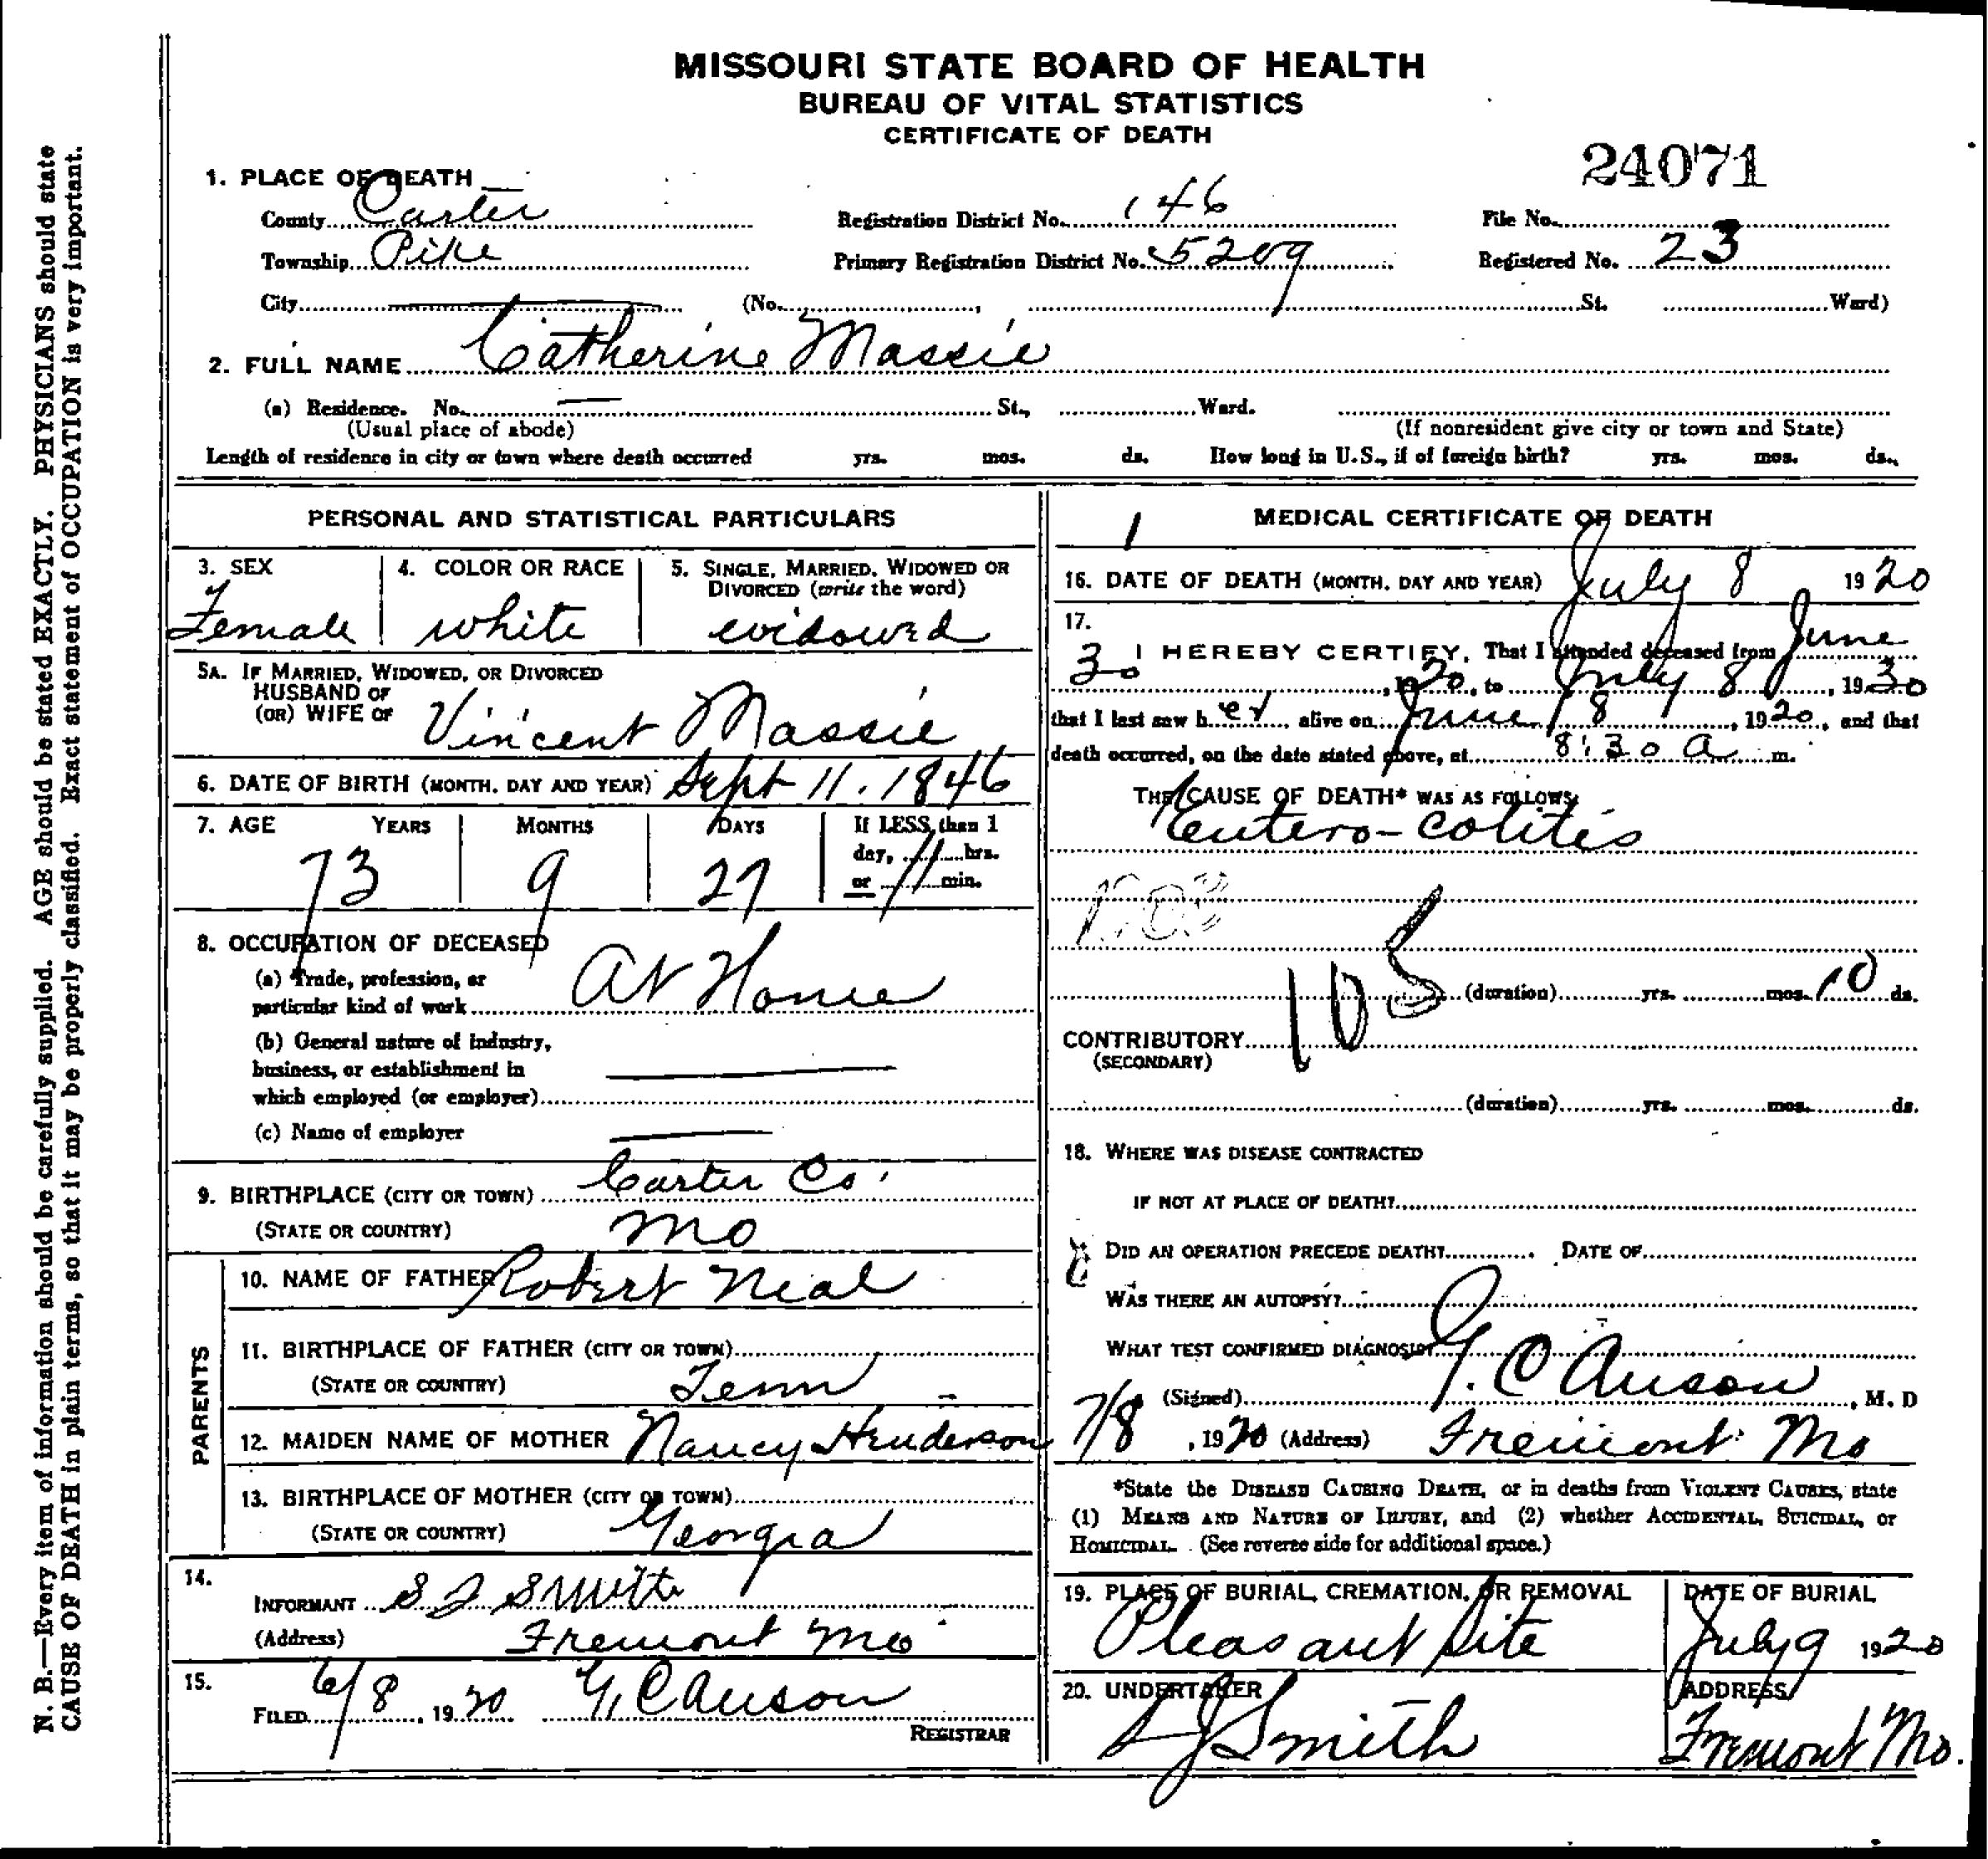 MISSOURI STATE BOARD OF HEALTH
BUREAU OF VITAL STATISTICS
CERTIFICATE OF DEATH
24071
1. PLACE OF DEATH
County Carter Registration District No. 146 File No.
Township Pike Primary Registration District No. 5209 Registered No. 23
City (No. , St. Ward)
2. FULL NAME Catherine Massie
(a) Residence. No. St., Ward.
(Usual place of abode) (If nonresident give city or town and State)
Length of residence in city or town where death occurred yrs. mos. ds. How long in U.S., if of foreign birth? yrs. mos. ds.
PERSONAL AND STATISTICAL PARTICULARS
3. SEX 4. COLOR OR RACE 5. SINGLE, MARRIED, WIDOWED OR
DIVORCED (write the word)
Female white widowed
5A. IF MARRIED, WIDOWED, OR DIVORCED
HUSBAND OF
(OR) WIFE OF Vincent Massie
6. DATE OF BIRTH (MONTH, DAY AND YEAR) Sept 11. 1846
7. AGE YEARS MONTHS DAYS If LESS than 1
day, hrs.
or min.
73 9 27
8. OCCUPATION OF DECEASED
(a) Trade, profession, or
particular kind of work At Home
(b) General nature of industry,
business, or establishment in
which employed (or employer)
(c) Name of employer
9. BIRTHPLACE (CITY OR TOWN) Carter Co.
(STATE OR COUNTRY) Mo
PARENTS
10. NAME OF FATHER Robert Neal
11. BIRTHPLACE OF FATHER (CITY OR TOWN)
(STATE OR COUNTRY) Tenn
12. MAIDEN NAME OF MOTHER Nancy Henderson
13. BIRTHPLACE OF MOTHER (CITY OR TOWN)
(STATE OR COUNTRY) Georgia
14.
INFORMANT S J Smith
(Address) Fremont Mo
15.
FILED 6/8, 1920 G. C Anson
REGISTRAR
1 MEDICAL CERTIFICATE OF DEATH
16. DATE OF DEATH (MONTH, DAY AND YEAR) July 8 1920
17.
I HEREBY CERTIFY, That I attended deceased from June
30, 1920, to July 8, 1930
that I last saw her alive on June 18, 1920, and that
death occurred, on the date stated above, at 8:30 a m.
THE CAUSE OF DEATH* WAS AS FOLLOWS:
Entero-colitis
105 (duration) yrs. mos. 10 ds.
CONTRIBUTORY
(SECONDARY)
(duration) yrs. mos. ds.
18. WHERE WAS DISEASE CONTRACTED
IF NOT AT PLACE OF DEATH?
DID AN OPERATION PRECEDE DEATH? DATE OF
WAS THERE AN AUTOPSY?
WHAT TEST CONFIRMED DIAGNOSIS?
(Signed) G. C Anson, M. D
7/8, 1920 (Address) Fremont Mo
*State the DISEASE CAUSING DEATH, or in deaths from VIOLENT CAUSES, state
(1) MEANS AND NATURE OF INJURY, and (2) whether ACCIDENTAL, SUICIDAL, or
HOMICIDAL. (See reverse side for additional space.)
19. PLACE OF BURIAL, CREMATION, OR REMOVAL DATE OF BURIAL
Pleasant Site July 9 1920
20. UNDERTAKER ADDRESS
S J Smith Fremont Mo.
N. B.—Every item of information should be carefully supplied. AGE should be stated EXACTLY. PHYSICIANS should state
CAUSE OF DEATH in plain terms, so that it may be properly classified. Exact statement of OCCUPATION is very important.